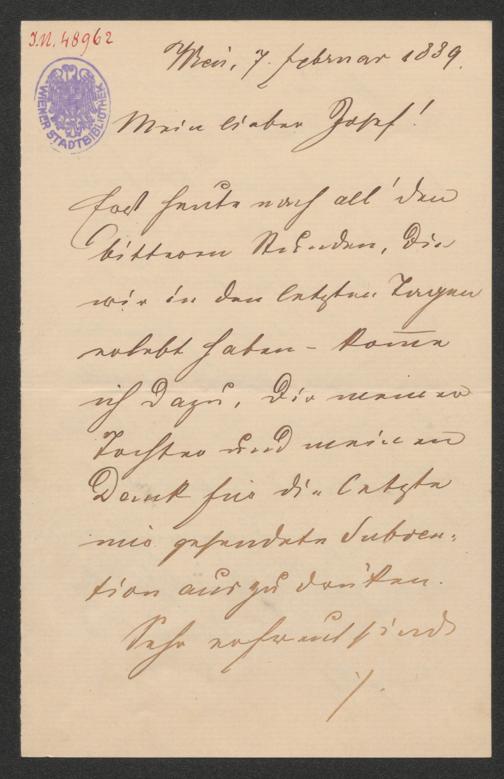 I.N. 48962
WIENER STADTBIBLIOTHEK
Wien, 7. Februar 1889.
Mein lieber Josef!
Erst heute nach all' den
bitteren Stunden, die
wir in den letzten Tagen
erlebt haben – kom̅e
ich dazu, Dir meiner
Tochter und meinen
Dank für die letzte
mir gesendete Subven-
tion auszudrüken.
Sehr erfreut sind
./.